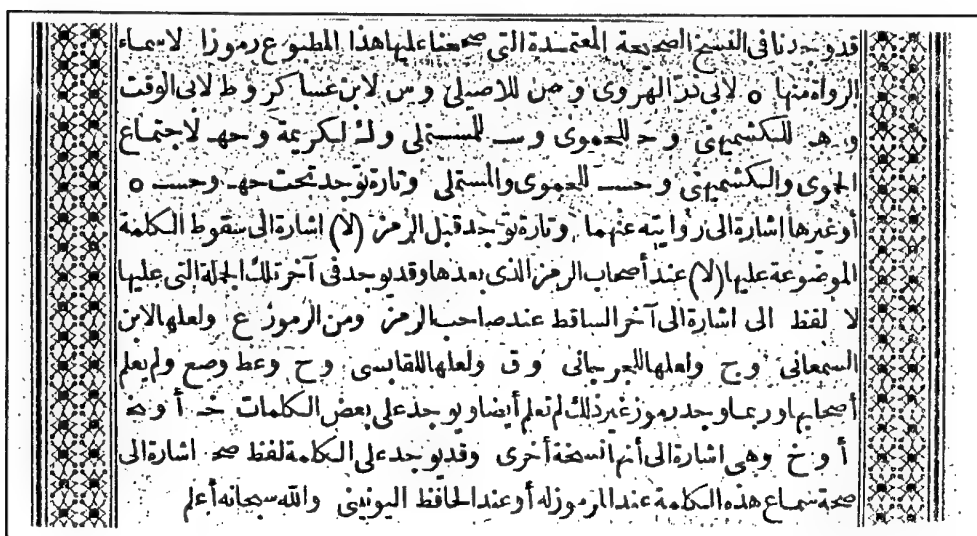 قد وجدنا فى النسخ الصحيحة المعتمدة التى صححنا عليها هذا المطبوع رموزا لاسماء
الرواة منها ه لابى ذر الهروى و ص للاصيلى و س لابن عساكر و ط لابى الوقت
و هـ للكشميهنى و حـ للحموى و ســ للمستملى و ك لكريمة و حهـ لاجتماع
الحموى والكشميهنى و حســ للحموى والمستملى وتارة توجد تحت حهـ وحســ ه
أو غيرها اشارة الى روايته عنهما وتارة توجد قبل الرمز (لا) اشارة الى سقوط الكلمة
الموضوعة عليها (لا) عند أصحاب الرمز الذى بعدها وقد يوجد فى آخر تلك الجملة التى عليها
لا لفظ الى اشارة الى آخر الساقط عند صاحب الرمز ومن الرموز ع ولعلها لابن
السمعانى و ج ولعلها للجرجانى و ق ولعلها للقابسى و ح و عط و صع ولم يعلم
أصحابها وربما وجد رموز غير ذلك لم تعلم أيضا ويوجد على بعض الكلمات خـ أو نخـ
أو خ وهى اشارة الى أنها نسخة أخرى وقد يوجد على الكلمة لفظ صحـ اشارة الى
صحة سماع هذه الكلمة عند المرموز له أو عند الحافظ اليونينى والله سبحانه أعلم